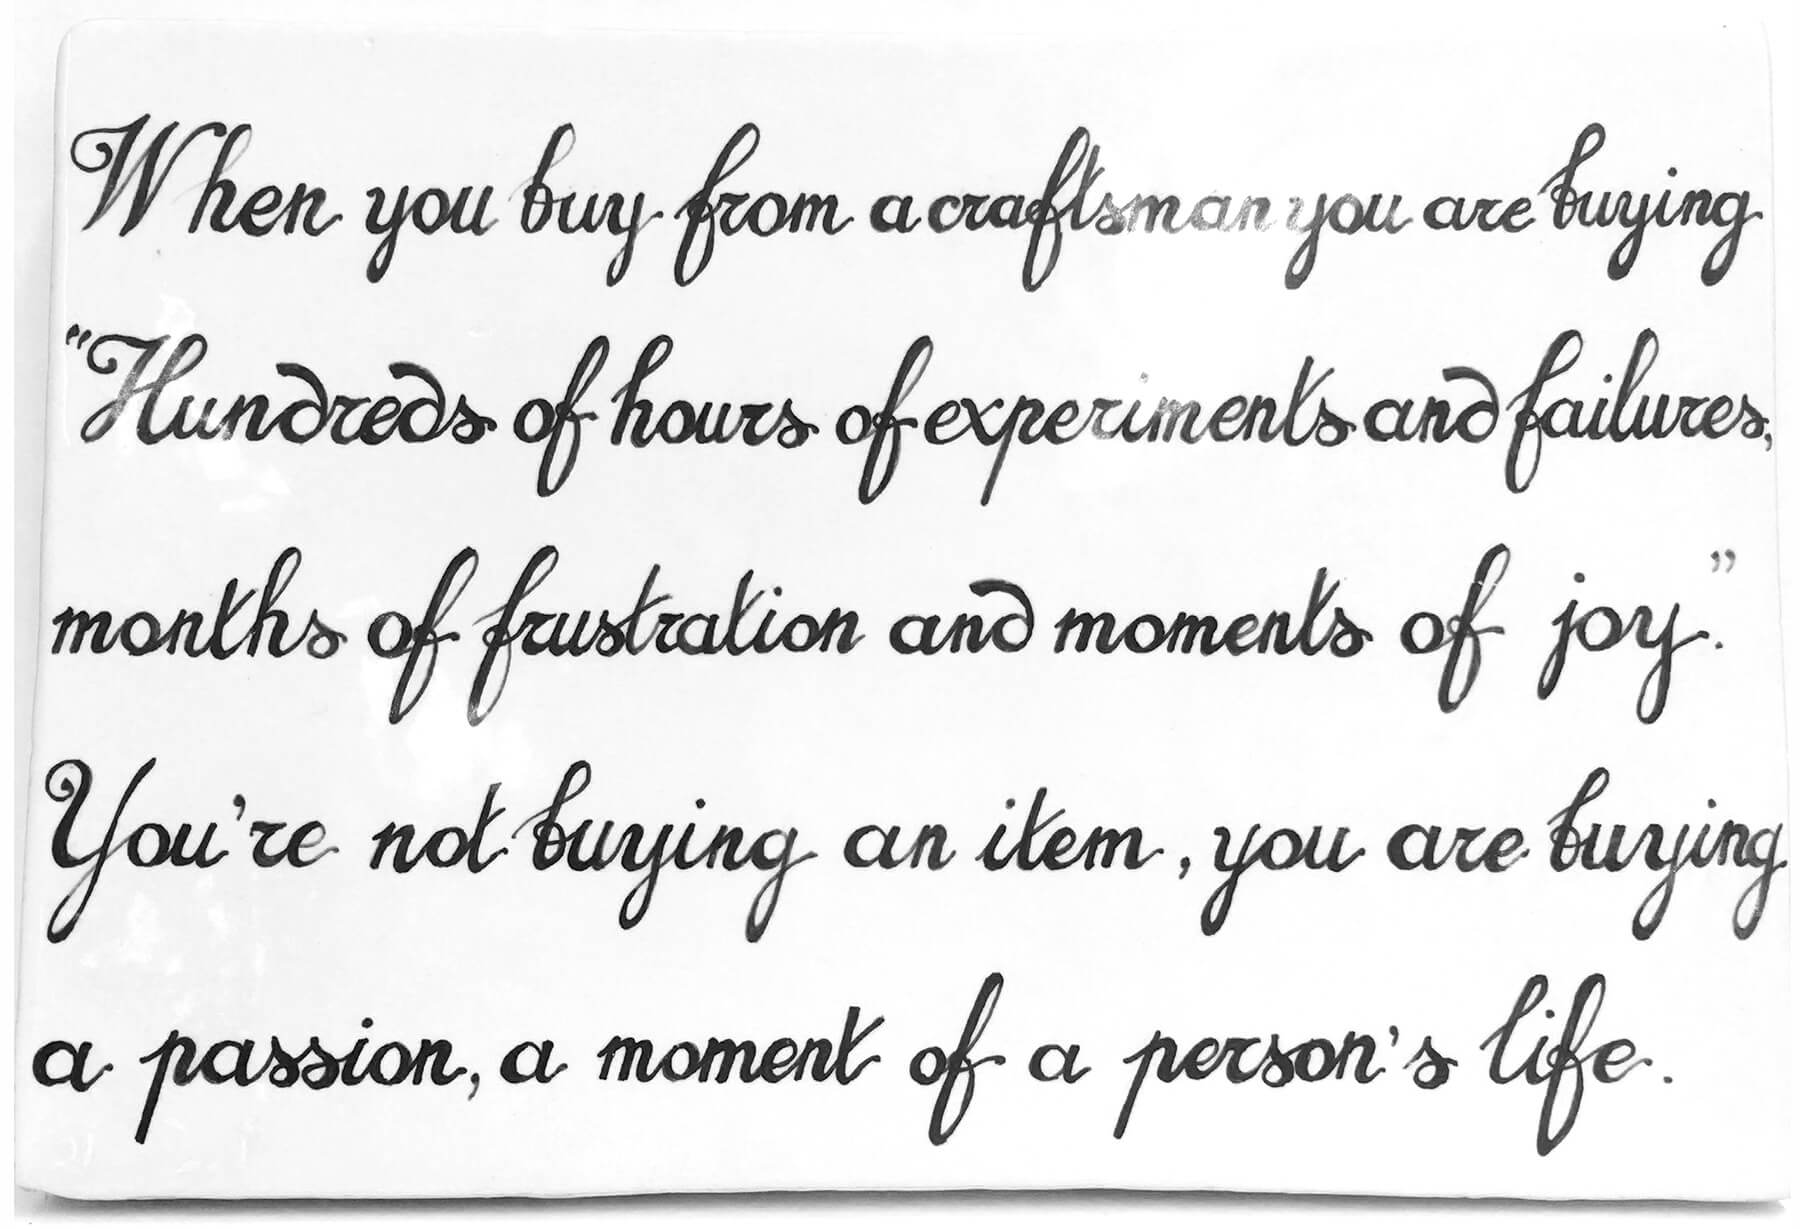 When you buy from a craftsman you are buying
"Hundreds of hours of experiments and failures,
months of frustration and moments of joy."
You're not buying an item, you are buying
a passion, a moment of a person's life.